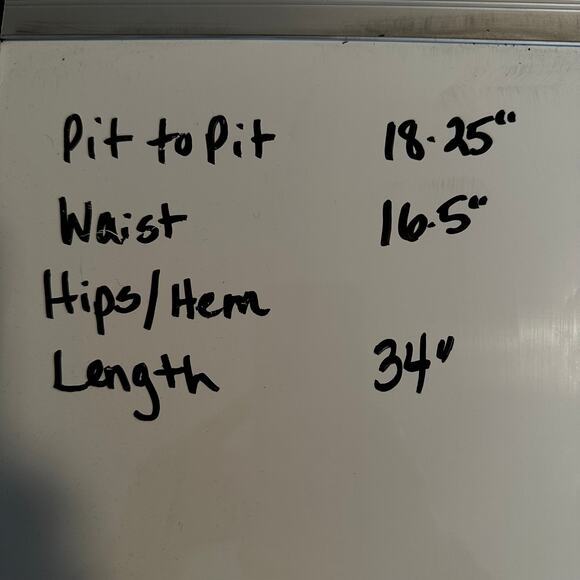 Pit to Pit 18.25"
Waist 16.5"
Hips/Hem
Length 34"